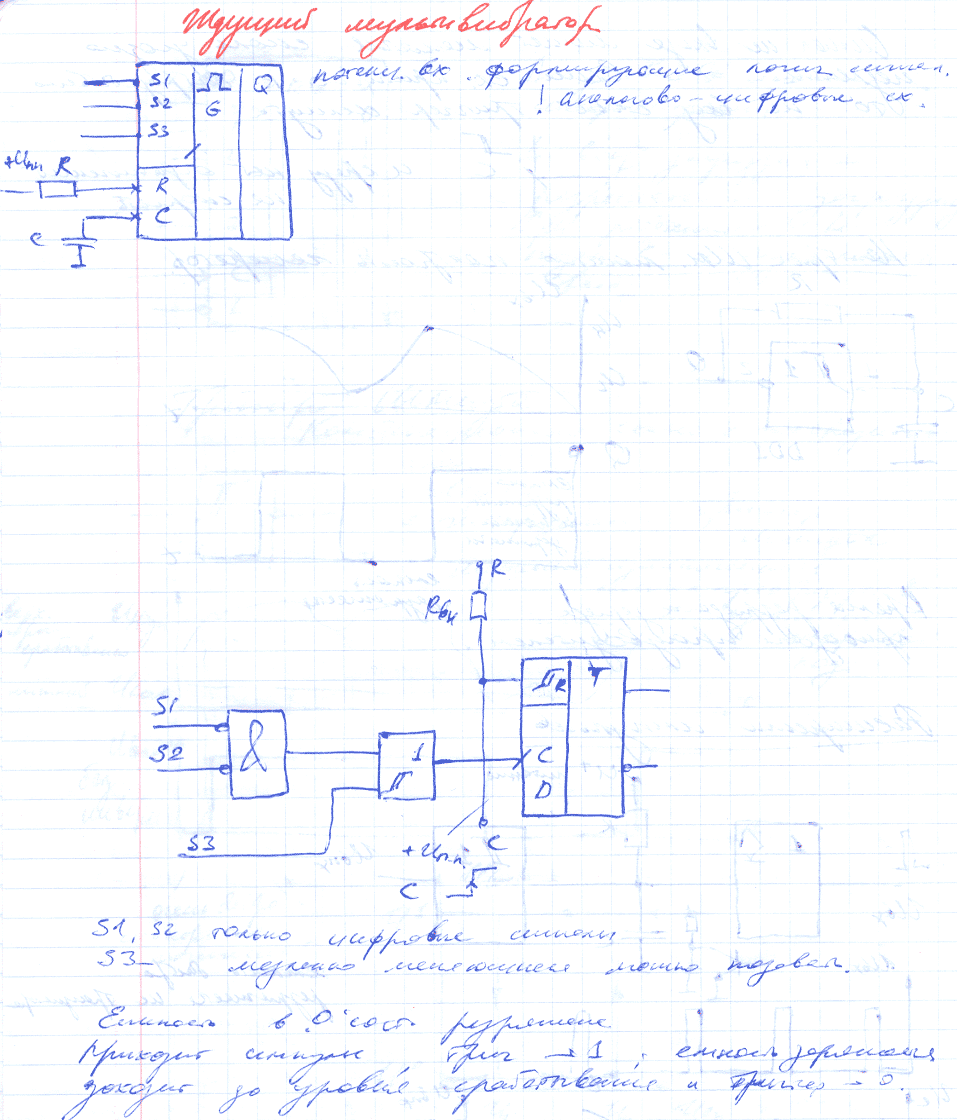 Ждущий мультивибратор
S1 Q потенц. вх. формирующие логич сигнал.
S2 G ! аналогово-цифровые сх.
S3
+Uпп R R
C C
R
Rвн
R T
S1
S2 & 1 C
D
S3 C
+Uп.п.
C
S1, S2 только цифровые сигналы
S3 – медленно меняющиеся можно подавать.
Емкость в "0" сост разряжена
Приходит импульс, триг → 1, емкость заряжается
доходит до уровня срабатывания и триггер → 0.